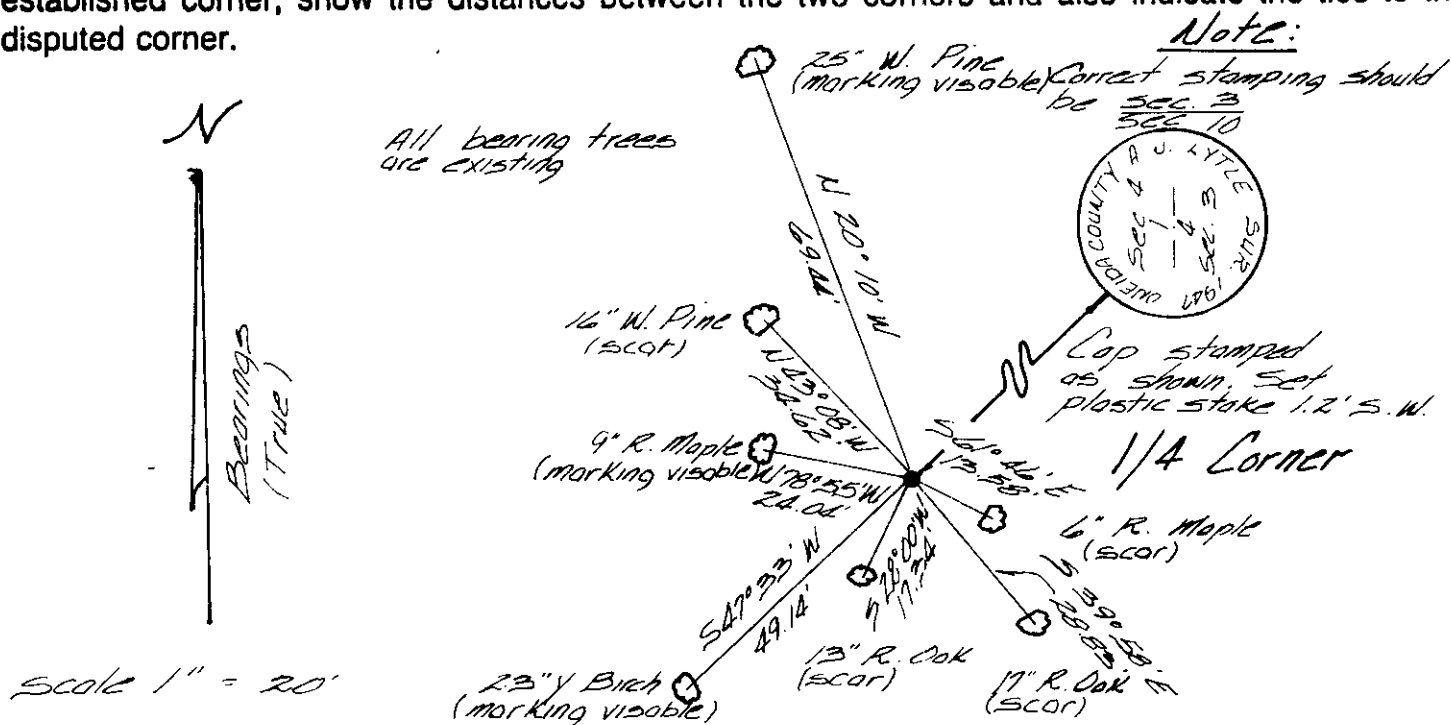 established corner, show the distances between the two corners and also indicate the ties to th
disputed corner.
Note:
Correct stamping should
be sec. 3
sec 10
N
All bearing trees
are existing
25" W. Pine
(marking visable)
N 20° 10' W
69.44'
ONEIDA COUNTY A. J. LYTLE SUR. 1947
Sec 4
1
4
Sec. 3
Cap stamped
as shown. Set
plastic stake 1.2' S.W.
1/4 Corner
16" W. Pine
(scar)
N 43° 08' W
34.62'
Bearings
(True)
9" R. Maple
(marking visable)
N 78° 55' W
24.04'
S 61° 46' E
13.58'
6" R. Maple
(scar)
S 47° 33' W
49.14'
28° 00' W
17.34'
S 39° 58' E
28.83'
13" R. Oak
(scar)
17" R. Oak
(scar)
23" Y Birch
(marking visable)
Scale 1" = 20'